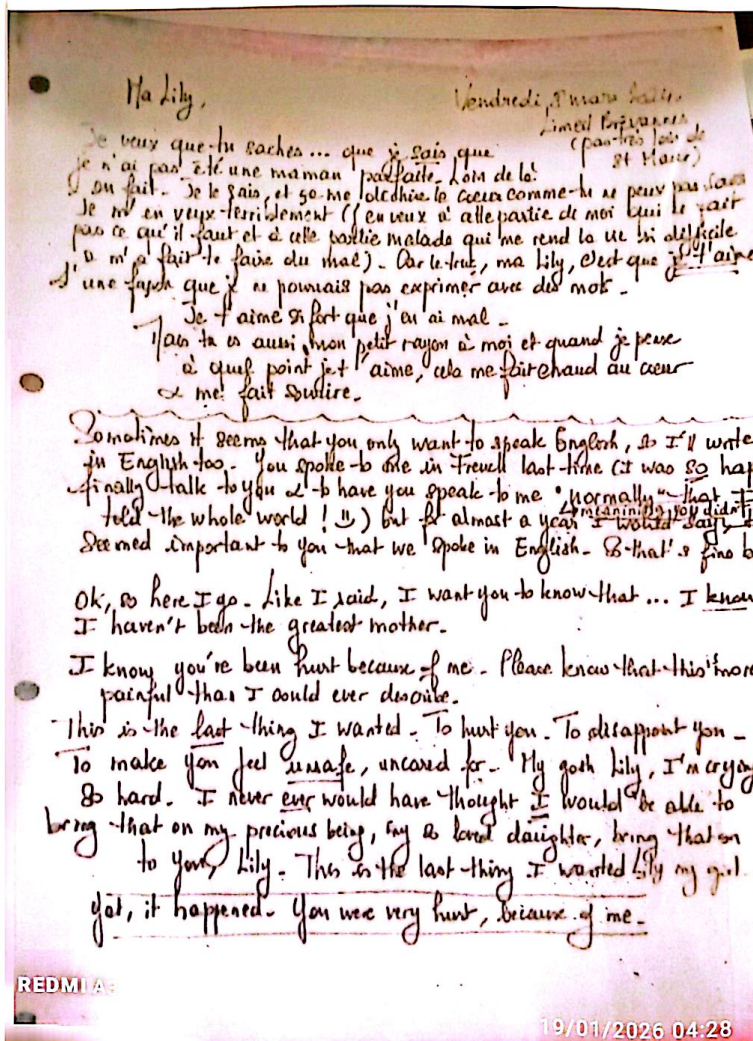 Ma Lily,
Vendredi, 8 mars
Limeil Brévannes
(pas très loin de
St Maur)
Je veux que tu saches... que je sais que
je n'ai pas été une maman parfaite. Loin de là
en fait. Je le sais, et ça me le coeur comme tu ne peux pas
Je m'en veux terriblement (j'en veux à cette partie de moi qui ne fait
pas ce qu'il faut et à cette partie malade qui me rend la vie si difficile
& m'a fait te faire du mal). Car le truc, ma Lily, c'est que je t'aime
d'une façon que je ne pourrais pas exprimer avec des mots.
Je t'aime si fort que j'en ai mal.
Mais tu es aussi mon petit rayon à moi et quand je pense
à quel point je t'aime, cela me fait chaud au coeur
& me fait sourire.
Sometimes it seems that you only want to speak English, so I'll write
in English too. You spoke to me in French last time (it was so hap
finally talk to you & to have you speak to me "normally" that I
meaning you didn't
told the whole world! :)) but for almost a year I would say, it
seemed important to you that we spoke in English. So that's fine b
Ok, so here I go. Like I said, I want you to know that... I know
I haven't been the greatest mother.
I know you're been hurt because of me. Please know that this more
painful than I could ever describe.
This is the last thing I wanted. To hurt you. To disappoint you.
To make you feel unsafe, uncared for. My gosh Lily, I'm crying
so hard. I never ever would have thought I would be able to
bring that on my precious being, my so loved daughter, bring that on
to you, Lily. This is the last thing I wanted Lily my girl.
Yet, it happened. You were very hurt, because of me.
REDMI A
19/01/2026 04:28